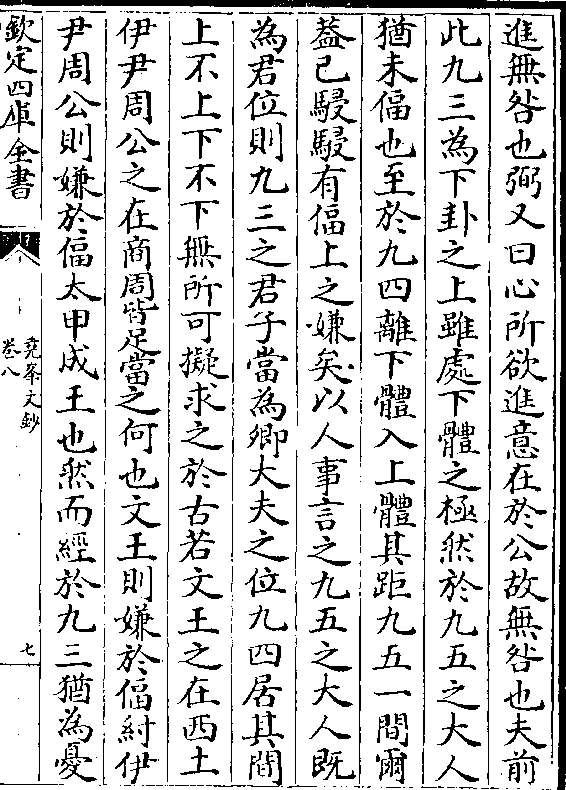 進無咎也弼又曰心所欲進意在於公故無咎也夫前
此九三為下卦之上雖處下體之極然於九五之大人
猶未偪也至於九四離下體入上體其距九五一間爾
葢已駸駸有偪上之嫌矣以人事言之九五之大人既
為君位則九三之君子當為卿大夫之位九四居其間
上不上下不下無所可擬求之於古若文王之在西土
伊尹周公之在商周皆足當之何也文王則嫌於偪紂伊
尹周公則嫌於偪太甲成王也然而經於九三猶為憂
欽定四庫全書
堯峯文鈔
卷八
七